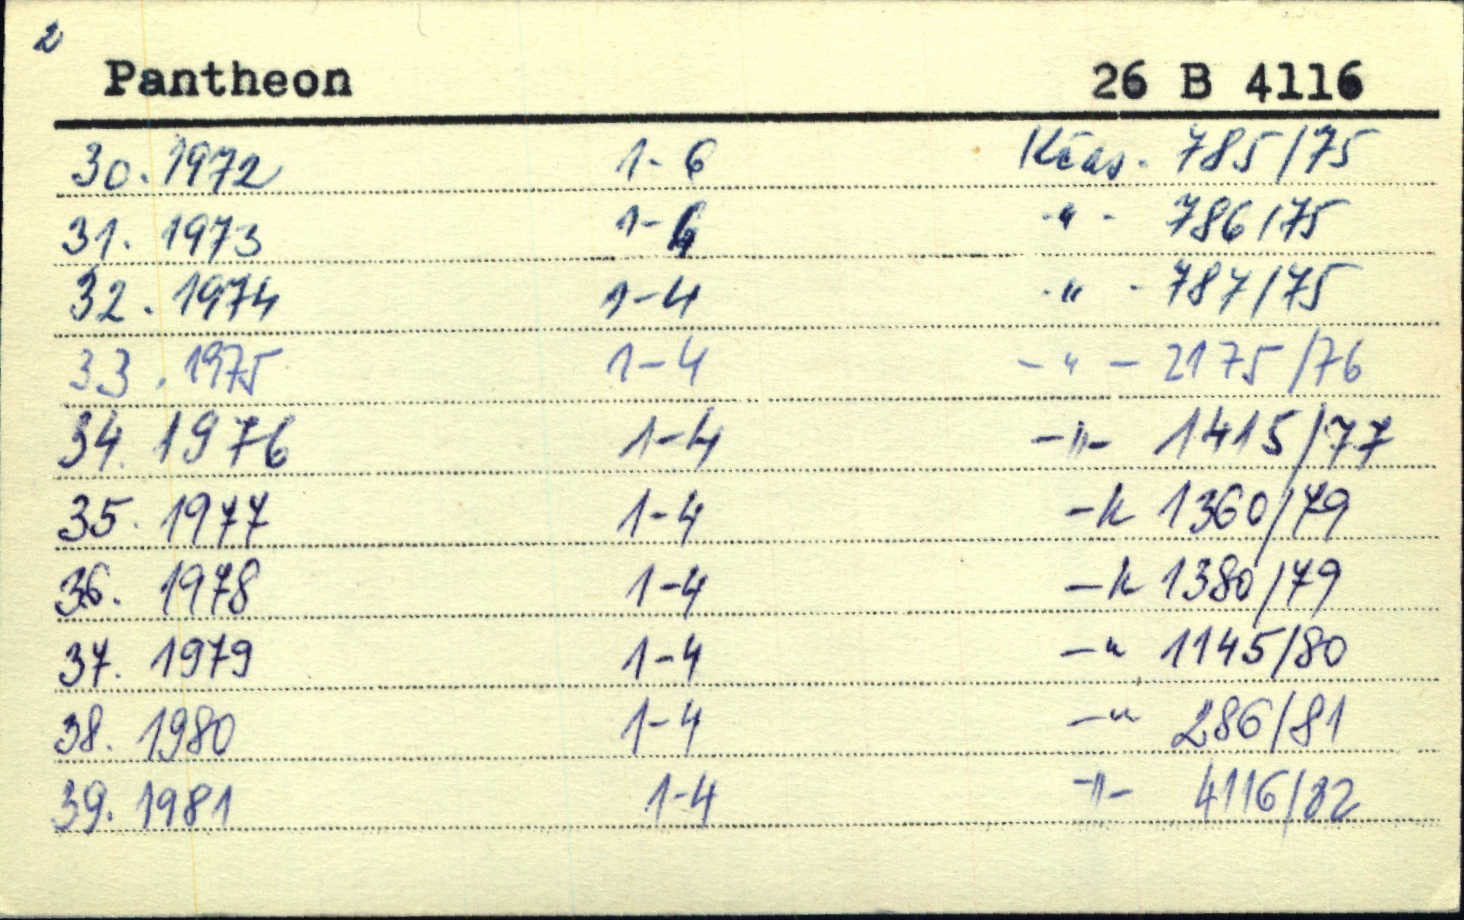 2
Pantheon 26 B 4116
30. 1972 1-6 Kčas. 785/75
31. 1973 1-4 -"- 786/75
32. 1974 1-4 -"- 787/75
33. 1975 1-4 -"- 2175/76
34. 1976 1-4 -"- 1415/77
35. 1977 1-4 -" 1360/79
36. 1978 1-4 -" 1380/79
37. 1979 1-4 -" 1145/80
38. 1980 1-4 -" 286/81
39. 1981 1-4 -"- 4116/82